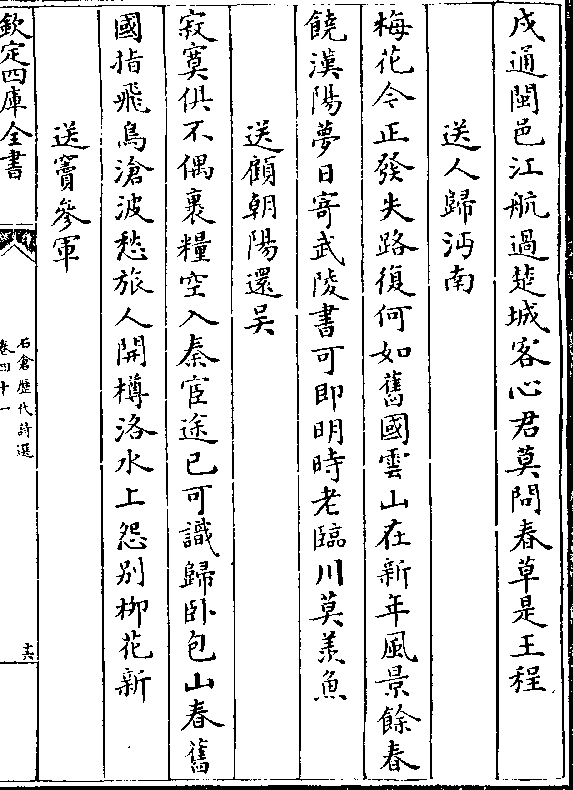 戍通閩邑江航過楚城客心君莫問春草是王程
送人歸沔南
梅花今正發失路復何如舊國雲山在新年風景餘春
饒漢陽夢日寄武陵書可即明時老臨川莫羨魚
送顧朝陽還吳
寂寞俱不偶裹糧空入秦宦途已可識歸卧包山春舊
國指飛鳥滄波愁旅人開樽洛水上怨别柳花新
送竇參軍
欽定四庫全書
石倉歷代詩選
卷四十一
十六